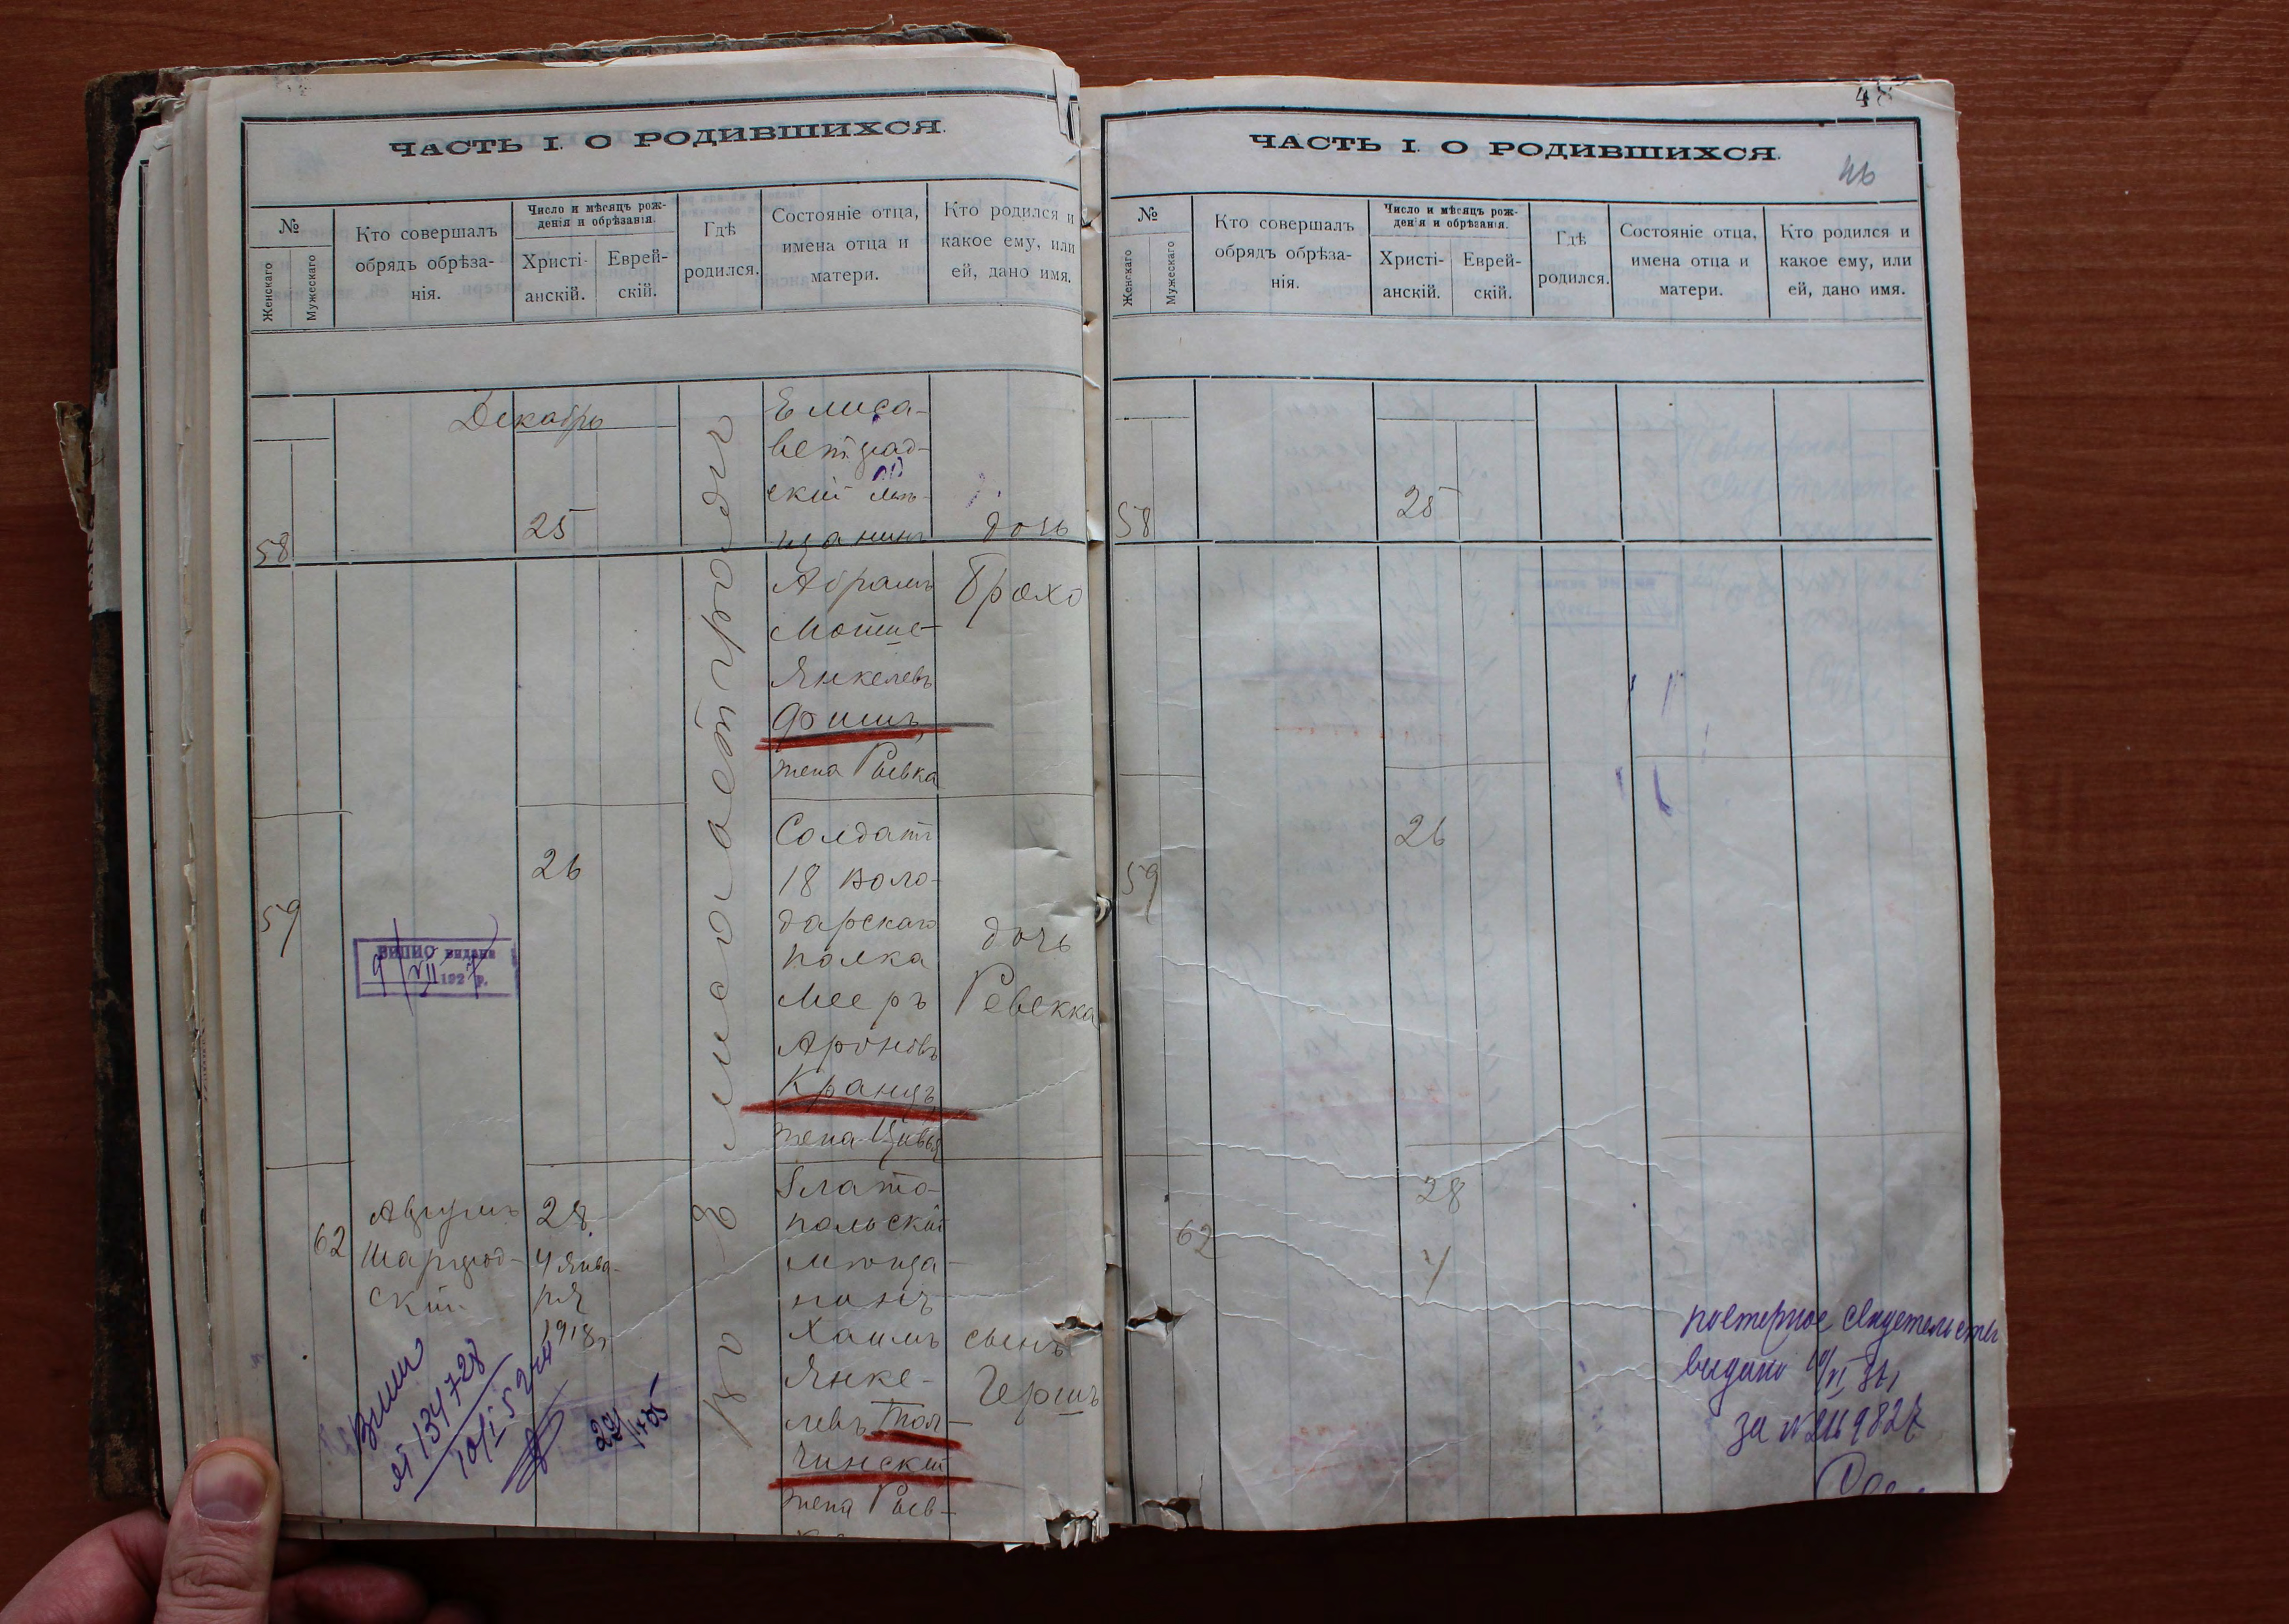 ЧАСТЬ I. О РОДИВШИХСЯ.
№
Женскаго
Мужескаго
Кто совершалъ
обрядъ обрѣза-
нія.
Число и мѣсяцъ рож-
денія и обрѣзанія.
Христі-
анскій.
Еврей-
скій.
Гдѣ
родился.
Состояніе отца,
имена отца и
матери.
Кто родился и
какое ему, или
ей, дано имя.
Декабрь
58
25
Елиса-
ветград-
скій мѣ-
щанинъ
Абрамъ
Мотше-
Янкелевъ
Фишъ,
жена Ривка
дочь
Брохо
59
ВИПИС видано
9/VII 1927 р.
26
Солдатъ
18 Воло-
дарскаго
полка
Мееръ
Ароновъ
Кранцъ,
жена Цивья
дочь
Ревекка
62
Шаргрод-
скій
28
4 Янва-
ря
1918 г
Злато-
польскій
мѣща-
нинъ
Хаимъ
Янке-
левъ Тол-
чинскій
жена Рив-
сынъ
Гершъ
134728
Елисаветградѣ
48
46
ЧАСТЬ I. О РОДИВШИХСЯ.
№
Женскаго
Мужескаго
Кто совершалъ
обрядъ обрѣза-
нія.
Число и мѣсяцъ рож-
денія и обрѣзанія.
Христі-
анскій.
Еврей-
скій.
Гдѣ
родился.
Состояніе отца,
имена отца и
матери.
Кто родился и
какое ему, или
ей, дано имя.
58
25
59
26
62
28
4
выдано
за №